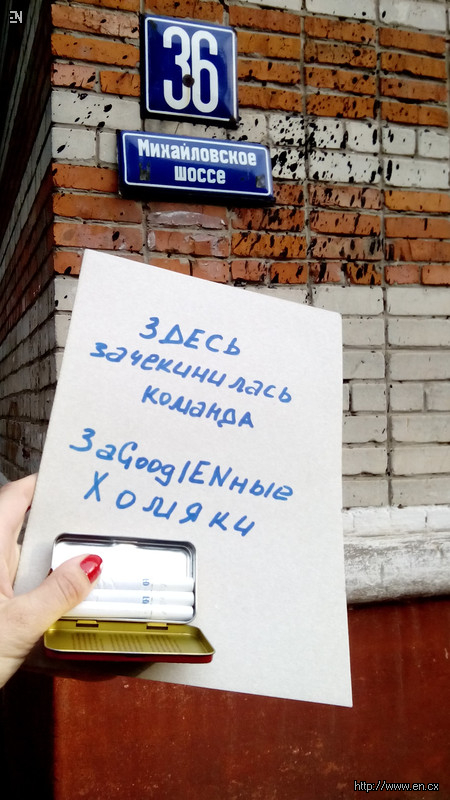 EN
36
Михайловское
шоссе
ЗДЕСЬ
зачекинилась
команда
ЗаGooglENные
Хомяки
http://www.en.cx